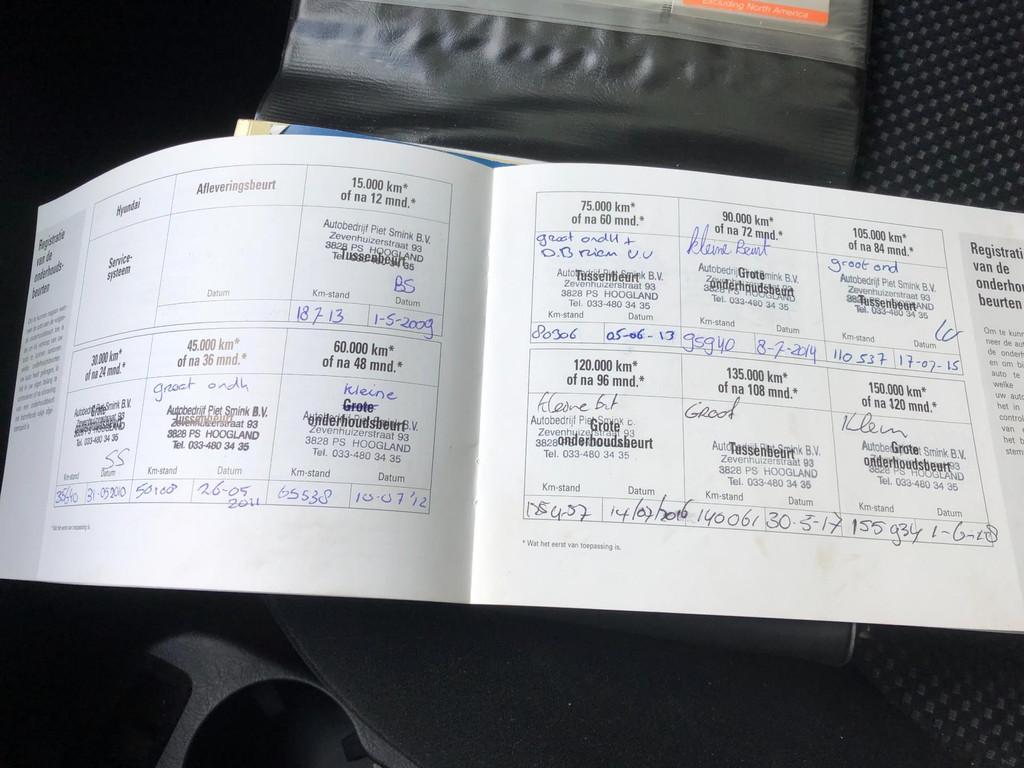 Excluding North America
Registratie
van de
onderhouds-
beurten
Hyundai
Afleveringsbeurt
15.000 km*
of na 12 mnd.*
Service-
systeem
Datum
Autobedrijf Piet Smink B.V.
Zevenhuizerstraat 93
3828 PS HOOGLAND
Tel. 033-480 34 35
Tussenbeurt
BS
Km-stand
Datum
18713
1-5-2009
30.000 km*
of na 24 mnd.*
45.000 km*
of na 36 mnd.*
60.000 km*
of na 48 mnd.*
Grote
SS
Km-stand
Datum
35640
31-052010
groot ondh
Autobedrijf Piet Smink B.V.
Zevenhuizerstraat 93
3828 PS HOOGLAND
Tel. 033-480 34 35
Tussenbeurt
Km-stand
Datum
50108
26-05
2011
kleine
Grote
onderhoudsbeurt
Autobedrijf Piet Smink B.V.
Zevenhuizerstraat 93
3828 PS HOOGLAND
Tel. 033-480 34 35
Km-stand
Datum
65538
10-07'12
*Wat het eerst van toepassing is.
75.000 km*
of na 60 mnd.*
90.000 km*
of na 72 mnd.*
105.000 km*
of na 84 mnd.*
groot ondh +
D.B riem v.v
Autobedrijf Piet Smink B.V.
Tussenbeurt
Zevenhuizerstraat 93
3828 PS HOOGLAND
Tel. 033-480 34 35
Km-stand
Datum
80306
05-06-13
kleine beurt
Autobedrijf Piet Smink B.V.
Grote
onderhoudsbeurt
Zevenhuizerstraat 93
3828 PS HOOGLAND
Tel. 033-480 34 35
Km-stand
Datum
95940
8-7-2014
groot ond
Autobedrijf Piet Smink B.V.
Zevenhuizerstraat 93
3828 PS HOOGLAND
Tussenbeurt
Tel. 033-480 34 35
Km-stand
Datum
110537
17-07-15
120.000 km*
of na 96 mnd.*
135.000 km*
of na 108 mnd.*
150.000 km*
of na 120 mnd.*
kleine brt
Grote
onderhoudsbeurt
Autobedrijf Piet Smink
Zevenhuizerstraat 93
3828 HOOGLAND
Tel. 033-480 34 35
Km-stand
Datum
14/07/2016
Groot
Autobedrijf Piet Smink B.V.
Tussenbeurt
Zevenhuizerstraat 93
3828 PS HOOGLAND
Tel. 033-480 34 35
Km-stand
Datum
140061
30-3-17
Klein
Autobedrijf Piet Smink B.V.
Grote
onderhoudsbeurt
Zevenhuizerstraat 93
3828 PS HOOGLAND
Tel. 033-480 34 35
Km-stand
Datum
155934
1-6-18
* Wat het eerst van toepassing is.
Registrati
van de
onderho
beurten